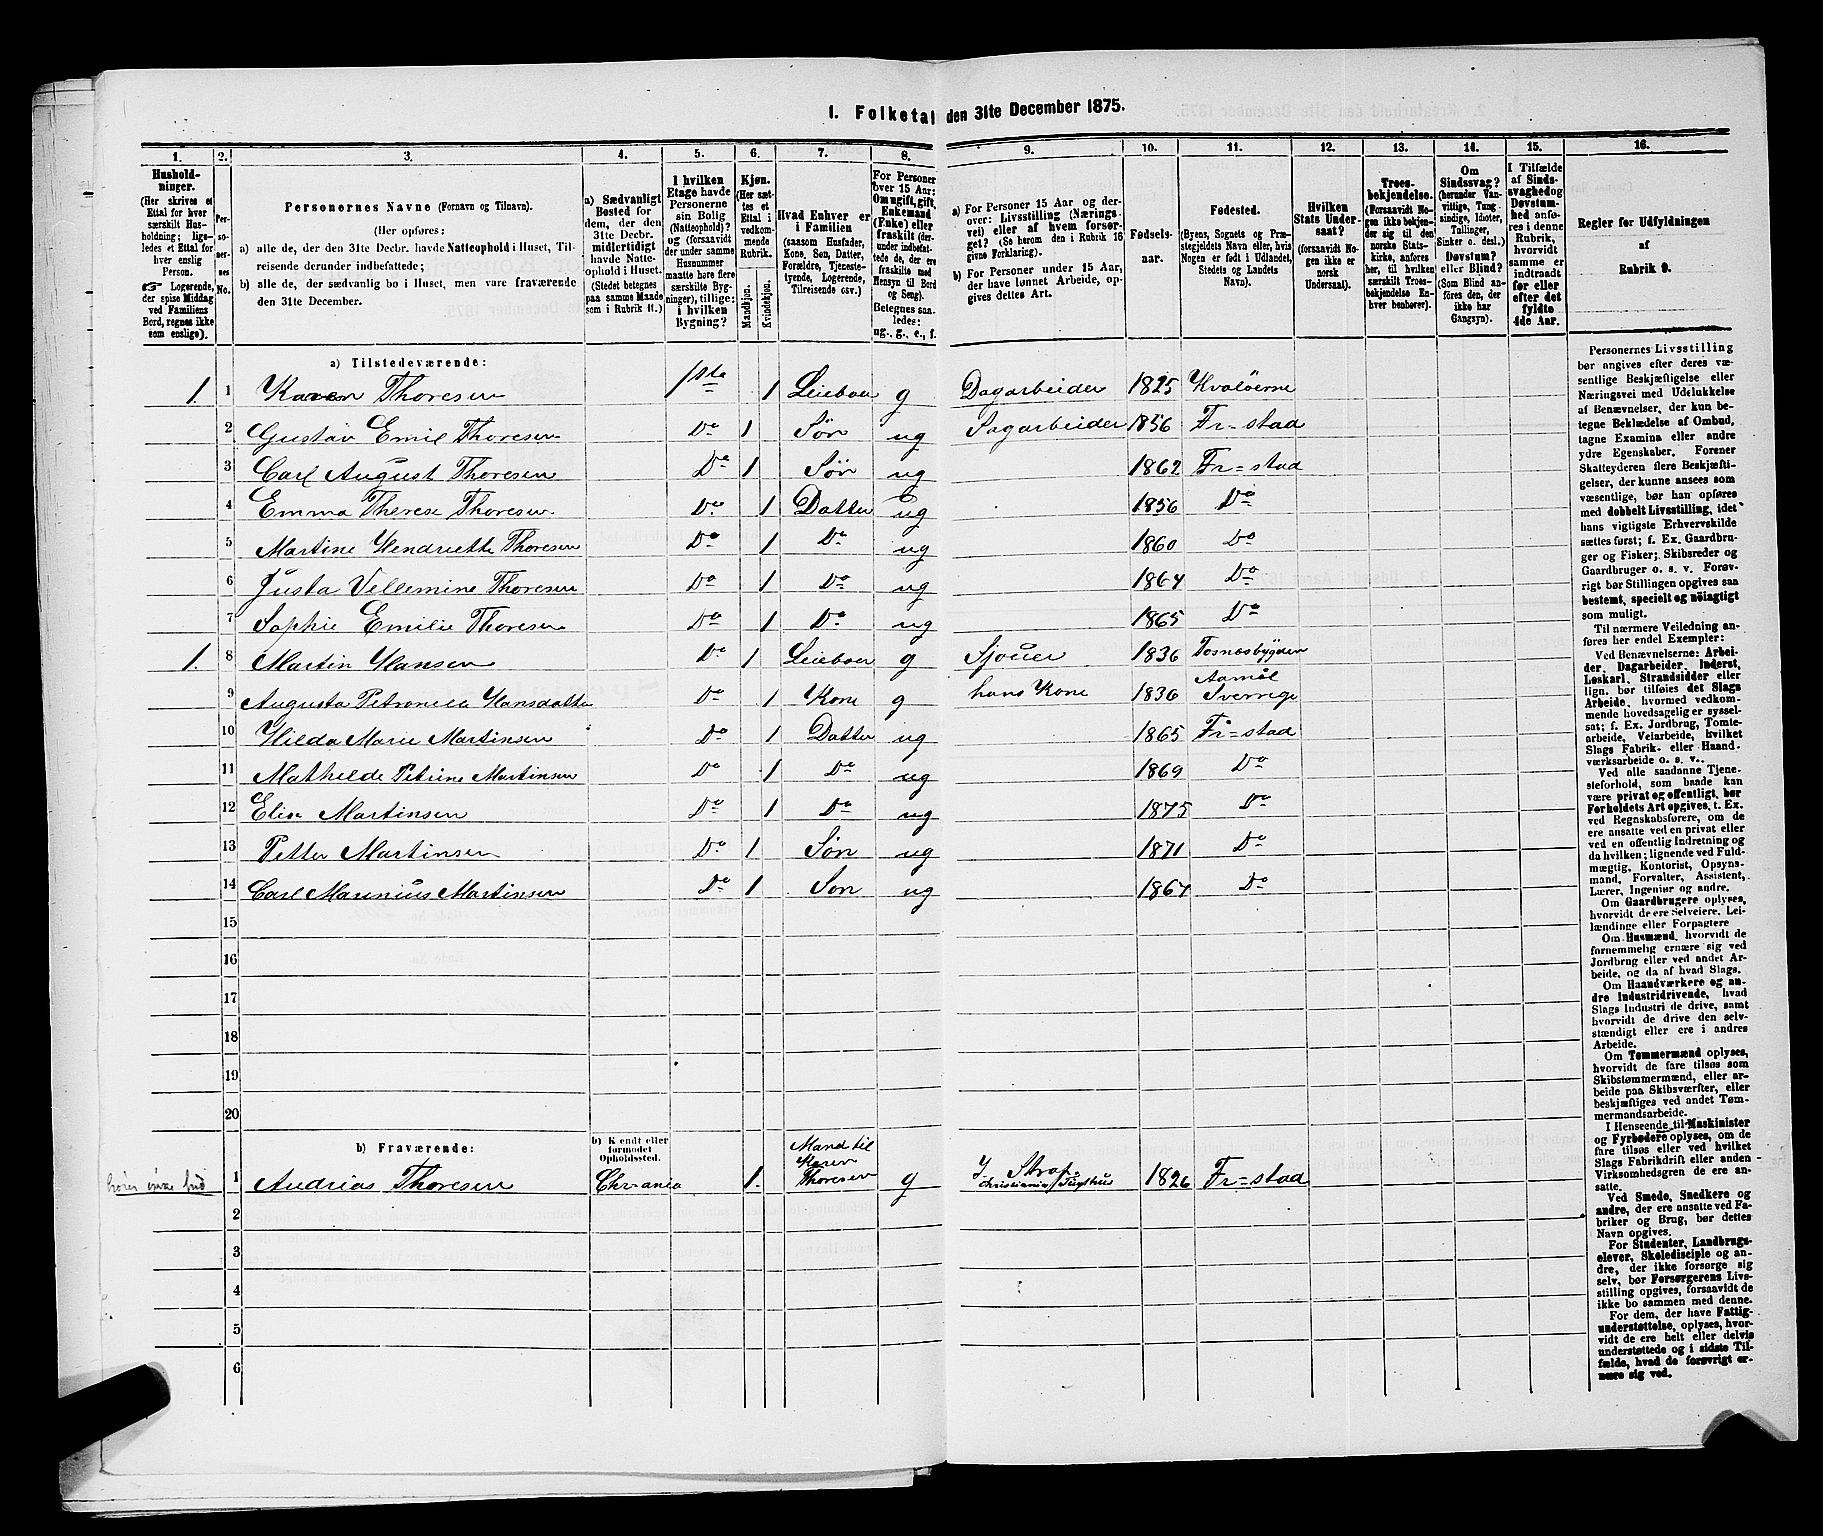 I. Folketal den 31te December 1875.
1. 2. 3. 4. 5. 6. 7. 8. 9. 10. 11. 12. 13. 14. 15. 16.
Husholdninger.
(Her skrives et
Ettal for hver
særskilt Husholdning; ligeledes et Ettal for
hver enslig
Person.
☞ Logerende,
der spise Middag
ved Familiens
Bord, regnes ikke
som enslige).
Personernes No.
Personernes Navne (Fornavn og Tilnavn).
(Her opføres:
a) alle de, der den 31te Decbr. havde Natteophold i Huset, Tilreisende derunder indbefattede;
b) alle de, der sædvanlig bo i Huset, men vare fraværende
den 31te December.
a) Sædvanligt
Bosted for
dem, der den
31te Decbr.
midlertidigt
havde Natteophold i Huset.
(Stedet betegnes
paa samme Maade
som i Rubrik 11.)
I hvilken
Etage havde
Personerne
sin Bolig
(Natteophold)?
og (forsaavidt
der under samme
Husnummer
maatte høre flere
særskilte Bygninger), tillige:
i hvilken
Bygning?
Kjøn.
(Her sættes et
Ettal i
vedkommende
Rubrik.
Mandkjøn.
Kvindekjøn.
Hvad Enhver er
i Familien
(saasom Husfader,
Kone, Søn, Datter,
Forældre, Tjenestetyende, Logerende,
Tilreisende osv.)
For Personer
over 15 Aar:
Om ugift, gift,
Enkemand
(Enke) eller
fraskilt (derunder indbefattede de, der ere
fraskilte med
Hensyn til Bord
og Seng).
Betegnes saaledes:
ug., g., e., f.
a) For Personer 15 Aar og derover: Livsstilling (Næringsvei) eller af hvem forsørget? (Se herom den i Rubrik 16
givne Forklaring).
b) For Personer under 15 Aar,
der have lønnet Arbeide, opgives dettes Art.
Fødselsaar.
Fødested.
(Byens, Sognets og Præstegjeldets Navn eller, hvis
Nogen er født i Udlandet,
Stedets og Landets
Navn).
Hvilken
Stats Undersaat?
(forsaavidt Nogen ikke er
norsk
Undersaat).
Troesbekjendelse.
(Forsaavidt Nogen ikke bekjender sig til den
norske Statskirke, anføres
her, til hvilken
særskilt Troesbekjendelse Enhver henhører).
Om
Sindssvag?
(herunder Vanvittige, Tungsindige, Idioter,
Tallinger,
Sinker o. desl.)
Døvstum?
eller Blind?
(Som Blind anføres den, der
ikke har
Gangsyn).
I Tilfælde
af Sindssvaghed og
Døvstumhed anføres i denne
Rubrik,
hvorvidt
samme er
indtraadt
før eller
efter det
fyldte
4de Aar.
Regler for Udfyldningen
af
Rubrik 9.
a) Tilstedeværende:
1. 1 Karen Thoresen 1ste 1 Leieboer g Dagarbeider 1825 Kvaløerne
2 Gustav Emil Thoresen Do 1 Søn ug Dagarbeider 1856 Fr=stad
3 Carl August Thoresen Do 1 Søn ug 1862 Fr=stad
4 Emma Therese Thoresen Do 1 Datter ug 1856 Do
5 Martine Hendriette Thoresen Do 1 Do ug 1860 Do
6 Justa Vellemine Thoresen Do 1 Do ug 1864 Do
7 Sophie Emilie Thoresen Do 1 Do ug 1865 Do
1. 8 Martin Hansen Do 1 Leieboer g Sjouer 1836 Tosnæsbygden
9 Augusta Petronella Hansdatter Do 1 Kone g hans Kone 1836 Aamøl Sverrige
10 Hilda Marie Martinsen Do 1 Datter ug 1865 Fr=stad
11 Mathilde Petrine Martinsen Do 1 Do ug 1869 Do
12 Elise Martinsen Do 1 Do ug 1875 Do
13 Petter Martinsen Do 1 Søn ug 1871 Do
14 Carl Marinius Martinsen Do 1 Søn ug 1867 Do
15
16
17
18
19
20
b) Fraværende:
b) Kendt eller
formodet
Opholdssted.
hører ikke hid 1 Andrias Thoresen Chrania 1. Mand til Karen Thoresen g I Straf Christiania Tugthus 1826 Fr=stad
2
3
4
5
6
Personernes Livsstilling
bør angives efter deres væsentlige Beskjæftigelse eller
Næringsvei med Udelukkelse
af Benævnelser, der kun betegne Beklædelse af Ombud,
tagne Examina eller andre
ydre Egenskaber. Forener
Skatteyderen flere Beskjæftigelser, der kunne ansees som
væsentlige, bør han opføres
med dobbelt Livsstilling, idet
hans vigtigste Erhvervskilde
sættes først; f. Ex. Gaardbruger og Fisker; Skibsreder og
Gaardbruger o. s. v. Forøvrigt bør Stillingen opgives saa
bestemt, specielt og nøiagtigt
som muligt.
Til nærmere Veiledning anføres her endel Exempler:
Ved Benævnelserne: Arbeider, Dagarbeider, Inderst,
Løskarl, Strandsidder eller
lign. bør tilføies det Slags
Arbeide, hvormed vedkommende hovedsagelig er sysselsat; f. Ex. Jordbrug, Tomtearbeide, Veiarbeide, hvilket
Slags Fabrik- eller Haandværksarbeide o. s. v..
Ved alle saadanne Tjenesteforhold, som baade kan
være privat og offentligt, bør
Forholdets Art opgives, t. Ex.
ved Regnskabsførere, om de
ere ansatte ved en privat eller
ved en offentlig Indretning og
da hvilken; lignende ved Fuldmægtig, Kontorist, Opsynsmand, Forvalter, Assistent,
Lærer, Ingeniør og andre.
Om Gaardbrugere oplyses,
hvorvidt de ere Selveiere, Leilændinge eller Forpagtere
Om Husmænd, hvorvidt de
fornemmelig ernære sig ved
Jordbrug eller ved andet Arbeide, og da af hvad Slags.
Om Haandværkere og andre Industridrivende, hvad
Slags Industri de drive, samt
hvorvidt de drive den selvstændigt eller ere i andres
Arbeide.
Om Tømmermænd oplyses,
hvorvidt de fare tilsøs som
Skibstømmermænd, eller arbeide paa Skibsværfter, eller
beskjæftiges ved andet Tømmermandsarbeide.
I Henseende til Maskinister
og Fyrbødere oplyses, om de
fare tilsøs eller ved hvilket
Slags Fabrikdrift eller anden
Virksomhedsgren de ere ansatte.
Ved Smede, Snedkere og
andre, der ere ansatte ved Fabriker og Brug, bør dettes
Navn opgives.
For Studenter, Landbrugselever, Skoledisciple og andre, der ikke forsørge sig
selv, bør Forsørgerens Livsstilling opgives, forsaavidt de
ikke bo sammen med denne.
For dem, der have Fattigunderstøttelse, oplyses, hvorvidt de ere helt eller delvis
understøttede og i sidste Tilfælde, hvad de forøvrigt ernære sig ved.